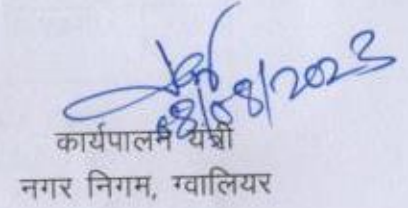 08/08/2023
कार्यपालन यंत्री
नगर निगम, ग्वालियर